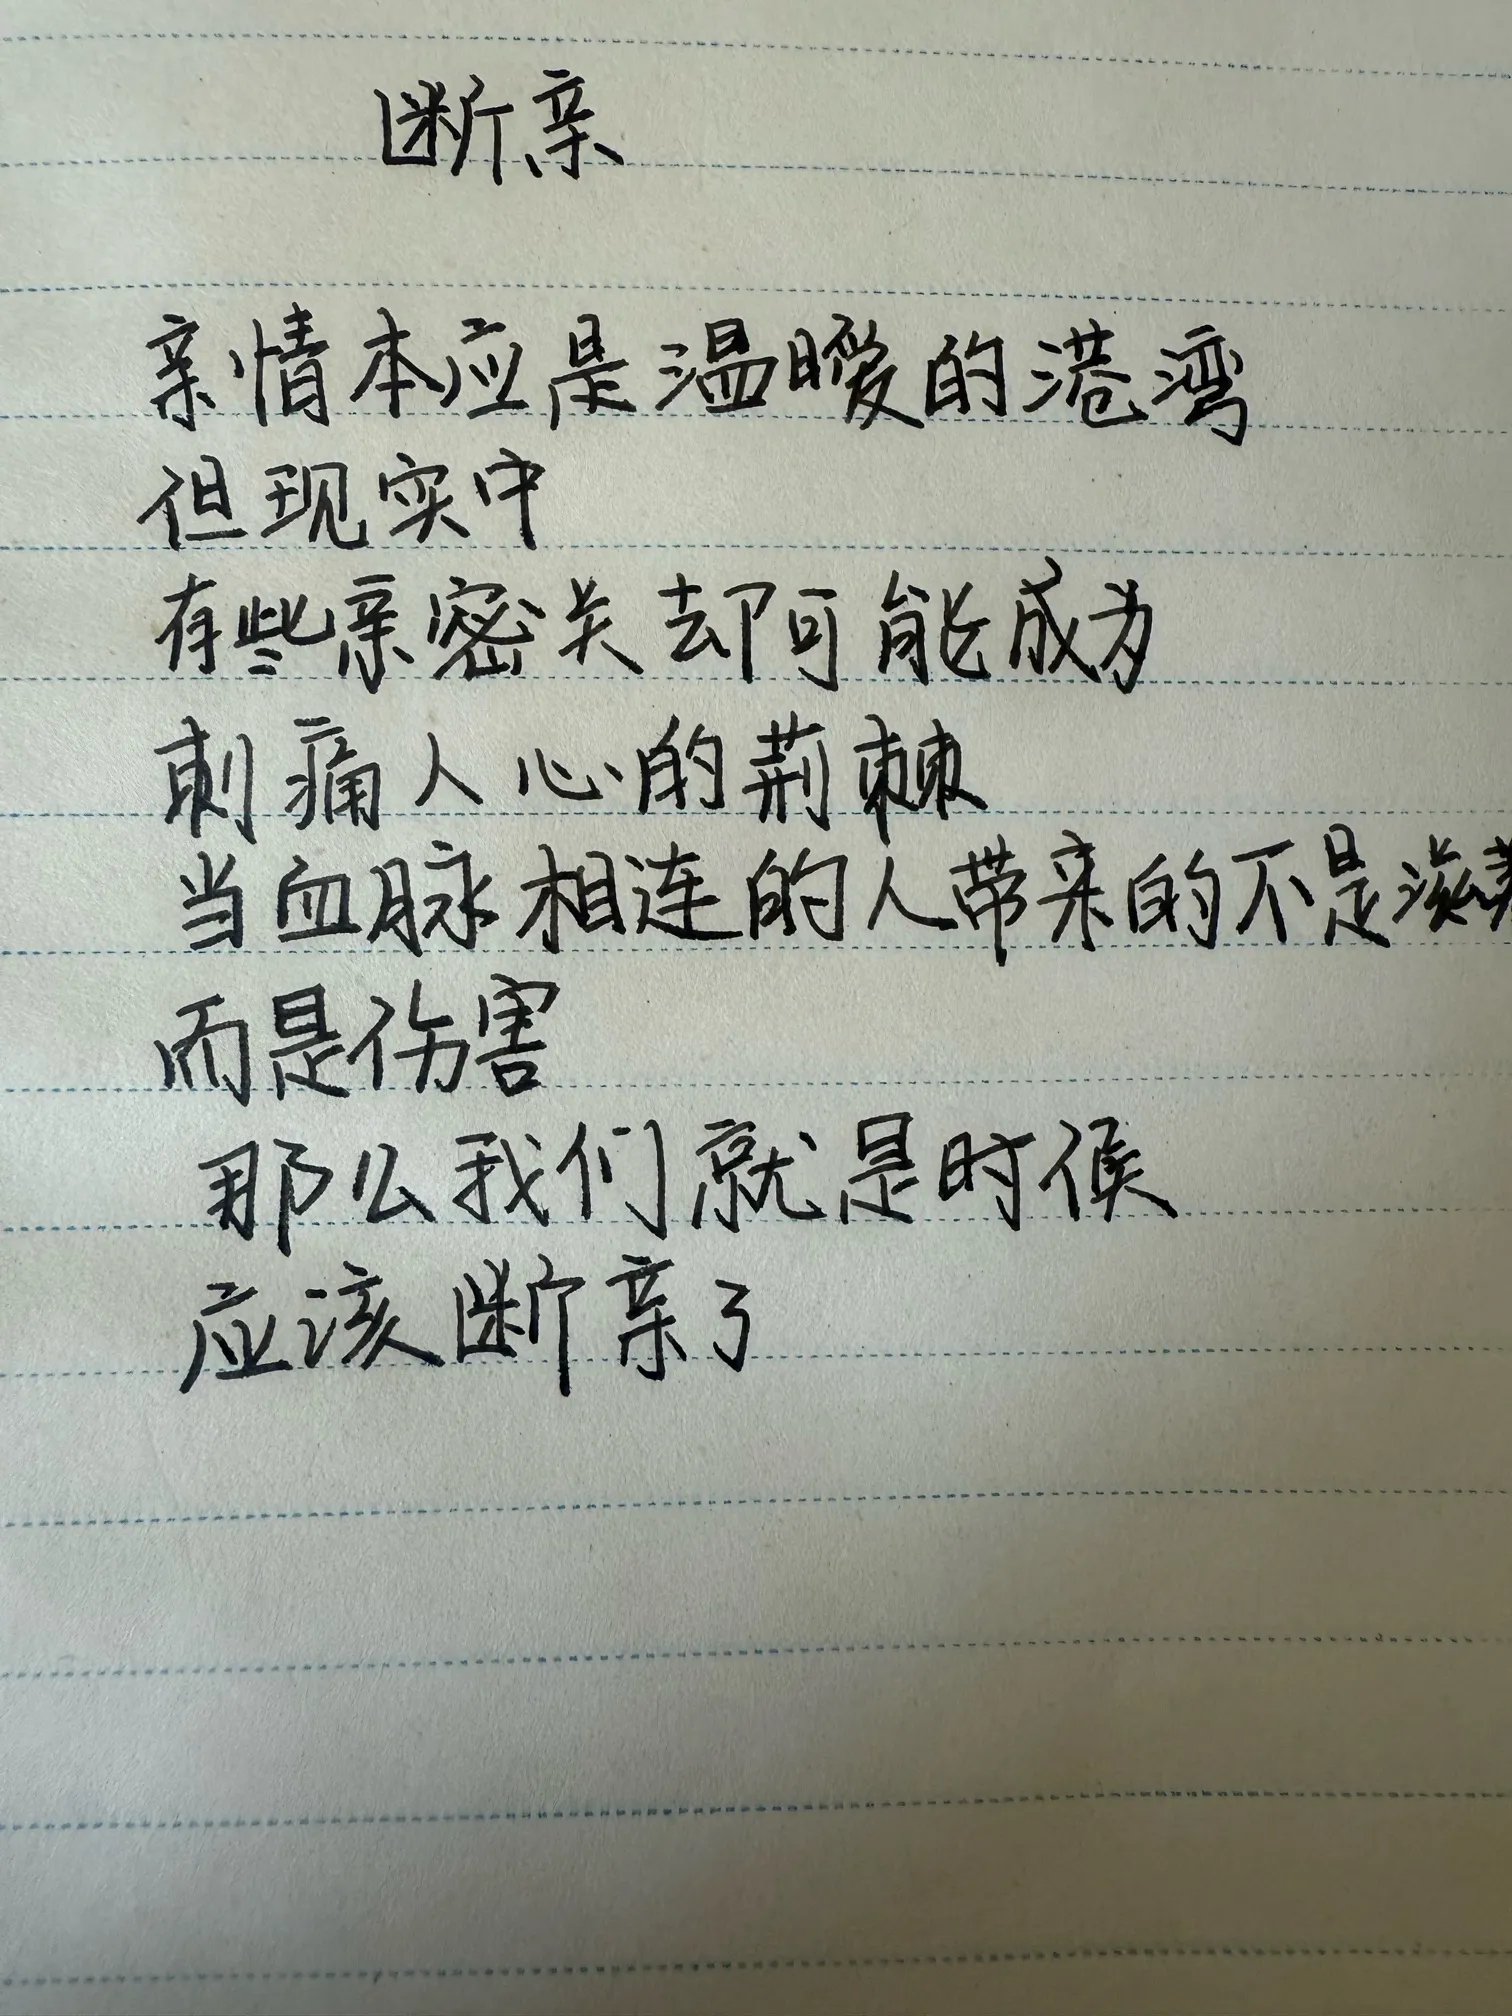 断亲
亲情本应是温暖的港湾
但现实中
有些亲密关却可能成为
刺痛人心的荆棘
当血脉相连的人带来的不是滋养
而是伤害
那么我们就是时候
应该断亲了